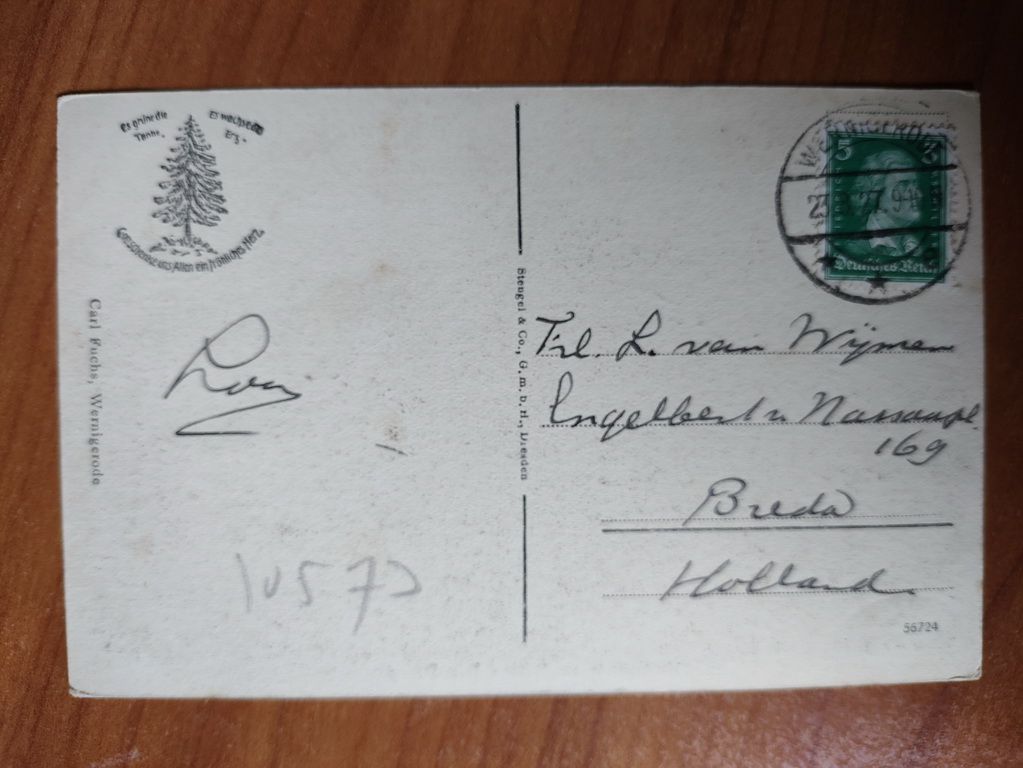 Es grüne die
Tanne,
Es wachse das
Erz,
Gott schenke uns Allen ein fröhliches Herz.
Carl Fuchs, Wernigerode
Stengel & Co., G.m.b.H., Dresden
5 5
Deutsches Reich
Frl. L. van Wijmen
Engelbert v. Nassaupl.
169
Breda
Holland.
56724